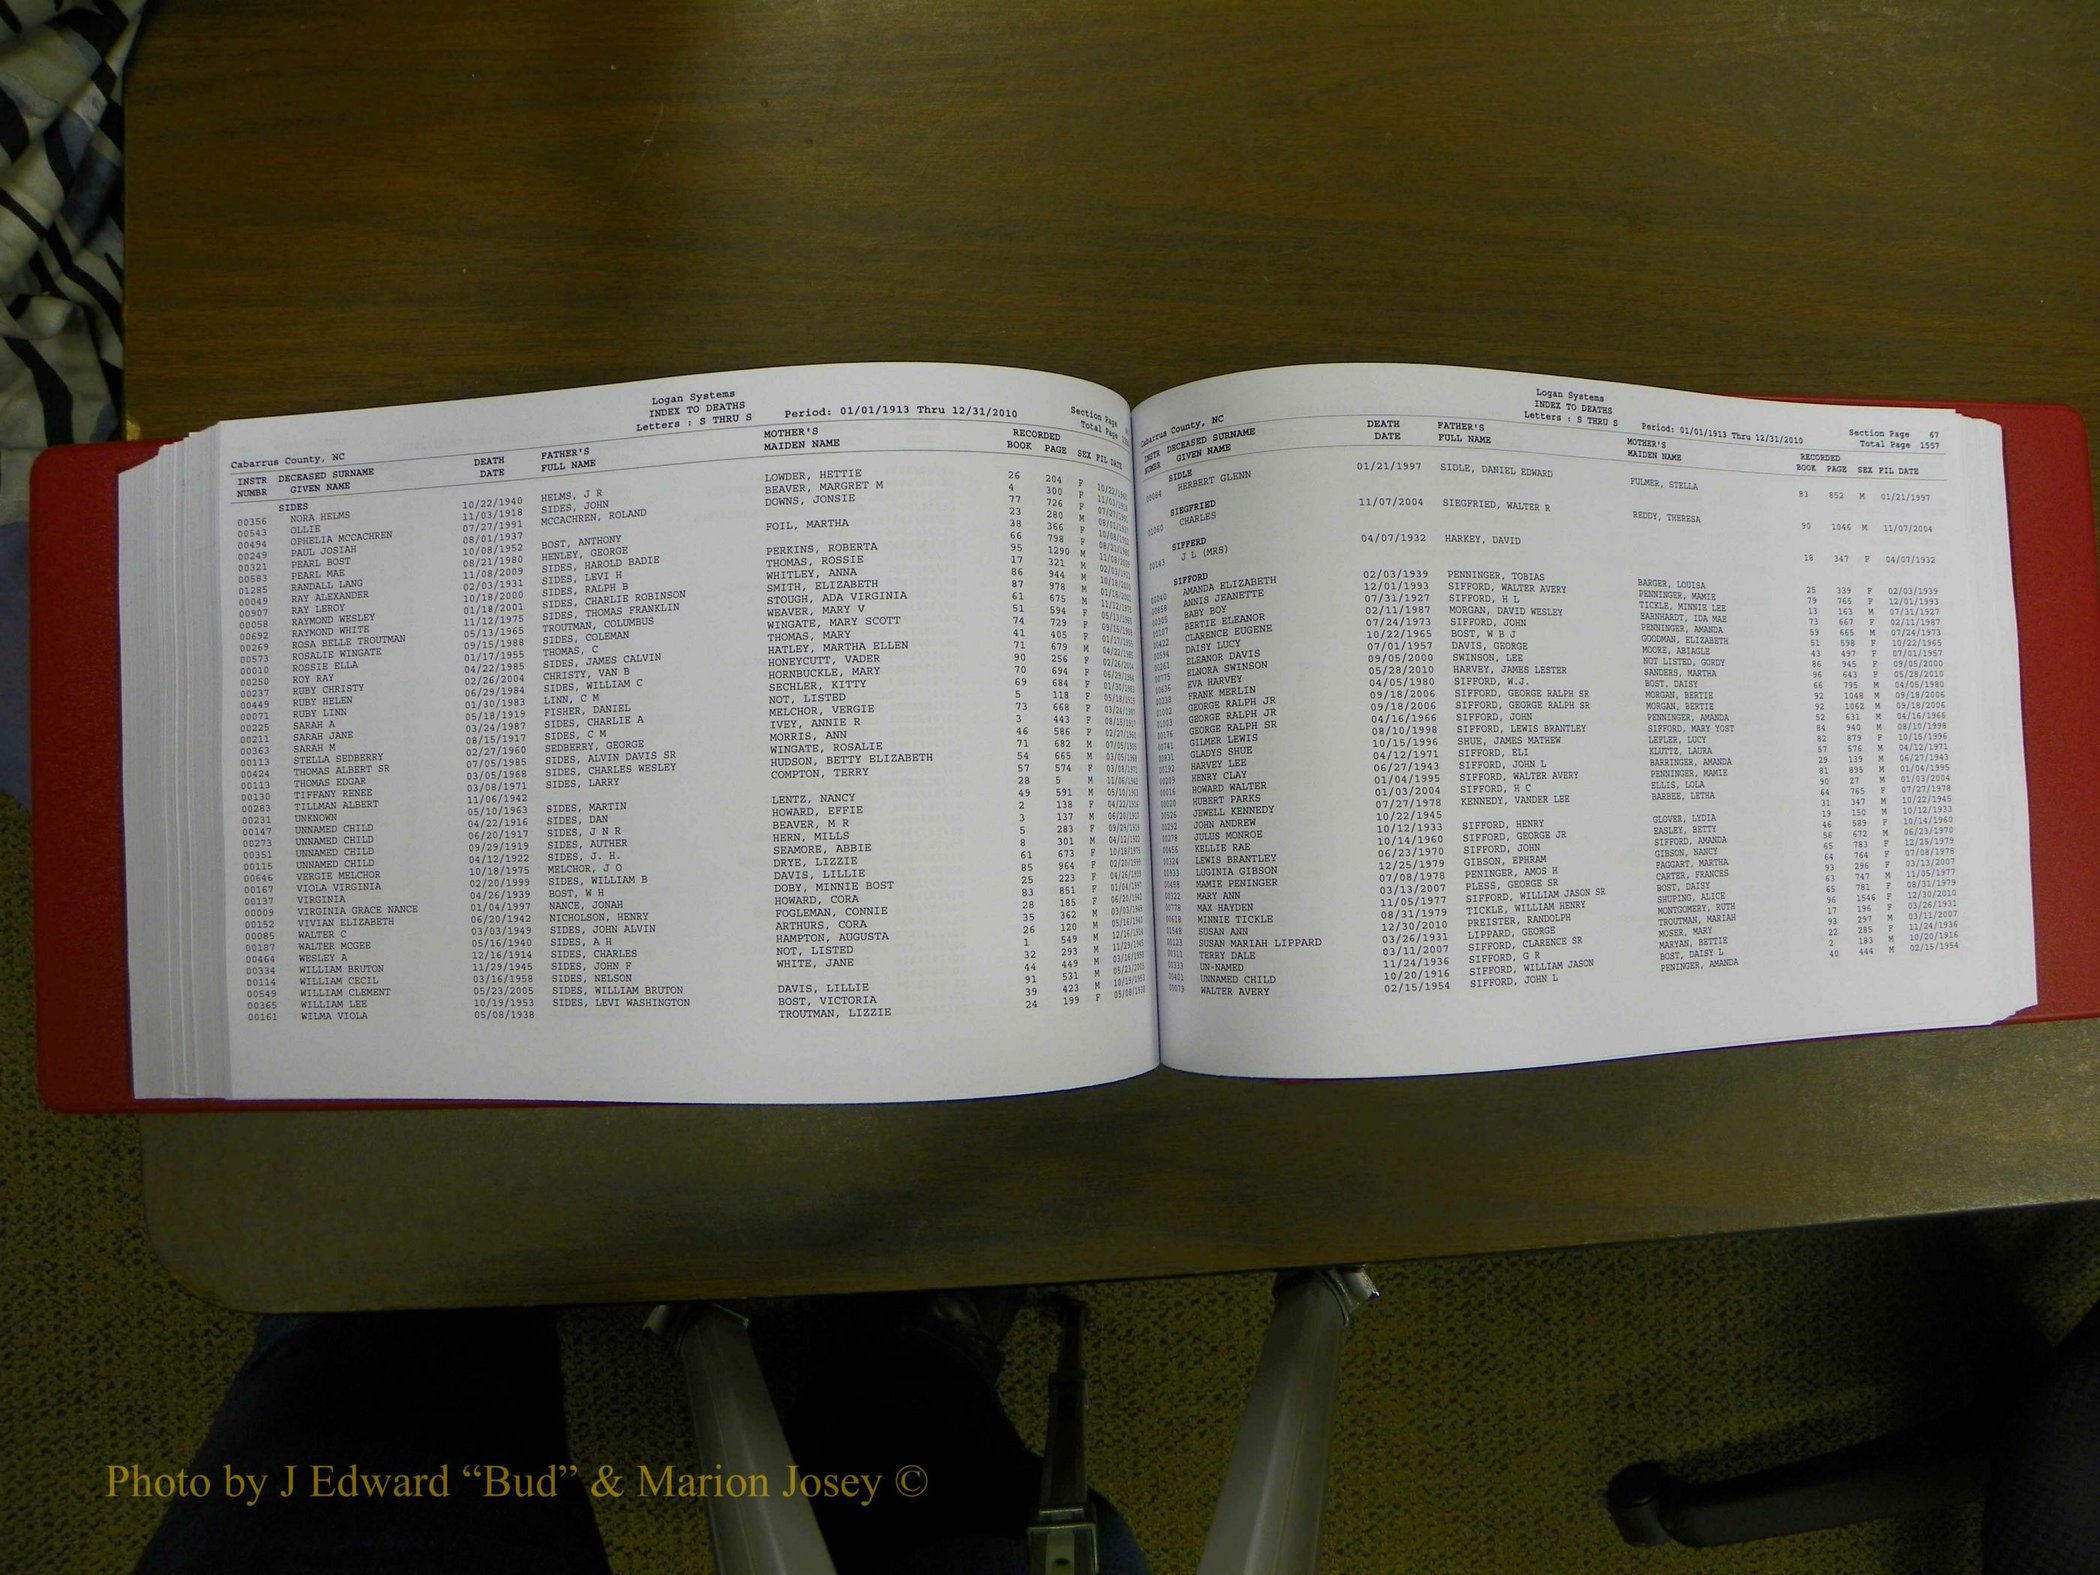 Logan Systems
INDEX TO DEATHS
Letters : S THRU S
Cabarrus County, NC Period: 01/01/1913 Thru 12/31/2010 Section Page
Total Page
INSTR DECEASED SURNAME DEATH FATHER'S MOTHER'S RECORDED
NUMBR GIVEN NAME DATE FULL NAME MAIDEN NAME BOOK PAGE SEX FIL DATE
SIDES
00356 NORA HELMS 10/22/1940 HELMS, J R LOWDER, HETTIE 26 204 F 10/22/1940
00543 OLLIE 11/03/1918 SIDES, JOHN BEAVER, MARGRET M 4 300 F 11/03/1918
00494 OPHELIA MCCACHREN 07/27/1991 MCCACHREN, ROLAND DOWNS, JONSIE 77 726 F 07/27/1991
00249 PAUL JOSIAH 08/01/1937 23 280 M 08/01/1937
00321 PEARL BOST 10/08/1952 BOST, ANTHONY FOIL, MARTHA 38 366 F 10/08/1952
00583 PEARL MAE 08/21/1980 HENLEY, GEORGE 66 798 F 08/21/1980
01285 RANDALL LANG 11/08/2009 SIDES, HAROLD BADIE PERKINS, ROBERTA 95 1290 M 11/08/2009
00049 RAY ALEXANDER 02/03/1931 SIDES, LEVI H THOMAS, ROSSIE 17 321 M 02/03/1931
00907 RAY LEROY 10/18/2000 SIDES, RALPH B WHITLEY, ANNA 86 944 M 10/18/2000
00058 RAYMOND WESLEY 01/18/2001 SIDES, CHARLIE ROBINSON SMITH, ELIZABETH 87 978 M 01/18/2001
00692 RAYMOND WHITE 11/12/1975 SIDES, THOMAS FRANKLIN STOUGH, ADA VIRGINIA 61 675 M 11/12/1975
00269 ROSA BELLE TROUTMAN 05/13/1965 TROUTMAN, COLUMBUS WEAVER, MARY V 51 594 F 05/13/1965
00573 ROSALIE WINGATE 09/15/1988 SIDES, COLEMAN WINGATE, MARY SCOTT 74 729 F 09/15/1988
00010 ROSSIE ELLA 01/17/1955 THOMAS, C THOMAS, MARY 41 405 F 01/17/1955
00250 ROY RAY 04/22/1985 SIDES, JAMES CALVIN HATLEY, MARTHA ELLEN 71 679 M 04/22/1985
00237 RUBY CHRISTY 02/26/2004 CHRISTY, VAN B HONEYCUTT, VADER 90 256 F 02/26/2004
00449 RUBY HELEN 06/29/1984 SIDES, WILLIAM C HORNBUCKLE, MARY 70 694 F 06/29/1984
00071 RUBY LINN 01/30/1983 LINN, C M SECHLER, KITTY 69 684 F 01/30/1983
00225 SARAH A 05/18/1919 FISHER, DANIEL NOT, LISTED 5 118 F 05/18/1919
00211 SARAH JANE 03/24/1987 SIDES, CHARLIE A MELCHOR, VERGIE 73 668 F 03/24/1987
00363 SARAH M 08/15/1917 SIDES, C M IVEY, ANNIE R 3 443 F 08/15/1917
00113 STELLA SEDBERRY 02/27/1960 SEDBERRY, GEORGE MORRIS, ANN 46 586 F 02/27/1960
00424 THOMAS ALBERT SR 07/05/1985 SIDES, ALVIN DAVIS SR WINGATE, ROSALIE 71 682 M 07/05/1985
00113 THOMAS EDGAR 03/05/1968 SIDES, CHARLES WESLEY HUDSON, BETTY ELIZABETH 54 665 M 03/05/1968
00130 TIFFANY RENEE 03/08/1971 SIDES, LARRY COMPTON, TERRY 57 574 F 03/08/1971
00283 TILLMAN ALBERT 11/06/1942 28 5 M 11/06/1942
00231 UNKNOWN 05/10/1963 SIDES, MARTIN LENTZ, NANCY 49 591 M 05/10/1963
00147 UNNAMED CHILD 04/22/1916 SIDES, DAN HOWARD, EFFIE 2 138 F 04/22/1916
00273 UNNAMED CHILD 06/20/1917 SIDES, J N R BEAVER, M R 3 137 M 06/20/1917
00351 UNNAMED CHILD 09/29/1919 SIDES, AUTHER HERN, MILLS 5 283 F 09/29/1919
00115 UNNAMED CHILD 04/12/1922 SIDES, J. H. SEAMORE, ABBIE 8 301 M 04/12/1922
00646 VERGIE MELCHOR 10/18/1975 MELCHOR, J O DRYE, LIZZIE 61 673 F 10/18/1975
00167 VIOLA VIRGINIA 02/20/1999 SIDES, WILLIAM B DAVIS, LILLIE 85 964 F 02/20/1999
00137 VIRGINIA 04/26/1939 BOST, W H DOBY, MINNIE BOST 25 223 F 04/26/1939
00009 VIRGINIA GRACE NANCE 01/04/1997 NANCE, JONAH HOWARD, CORA 83 851 F 01/04/1997
00152 VIVIAN ELIZABETH 06/20/1942 NICHOLSON, HENRY FOGLEMAN, CONNIE 28 185 F 06/20/1942
00085 WALTER C 03/03/1949 SIDES, JOHN ALVIN ARTHURS, CORA 35 362 M 03/03/1949
00187 WALTER MCGEE 05/16/1940 SIDES, A H HAMPTON, AUGUSTA 26 120 M 05/16/1940
00464 WESLEY A 12/16/1914 SIDES, CHARLES NOT, LISTED 1 549 M 12/16/1914
00334 WILLIAM BRUTON 11/29/1945 SIDES, JOHN F WHITE, JANE 32 293 M 11/29/1945
00114 WILLIAM CECIL 03/16/1958 SIDES, NELSON 44 449 M 03/16/1958
00549 WILLIAM CLEMENT 05/23/2005 SIDES, WILLIAM BRUTON DAVIS, LILLIE 91 531 M 05/23/2005
00365 WILLIAM LEE 10/19/1953 SIDES, LEVI WASHINGTON BOST, VICTORIA 39 423 M 10/19/1953
00161 WILMA VIOLA 05/08/1938 TROUTMAN, LIZZIE 24 199 F 05/08/1938
Logan Systems
INDEX TO DEATHS
Letters : S THRU S
Cabarrus County, NC Period: 01/01/1913 Thru 12/31/2010 Section Page 67
Total Page 1557
INSTR DECEASED SURNAME DEATH FATHER'S MOTHER'S RECORDED
NUMBR GIVEN NAME DATE FULL NAME MAIDEN NAME BOOK PAGE SEX FIL DATE
SIDLE
00064 HERBERT GLENN 01/21/1997 SIDLE, DANIEL EDWARD FULMER, STELLA 83 852 M 01/21/1997
SIEGFRIED
01060 CHARLES 11/07/2004 SIEGFRIED, WALTER R REDDY, THERESA 90 1046 M 11/07/2004
SIFFERD
00143 J L (MRS) 04/07/1932 HARKEY, DAVID 18 347 F 04/07/1932
SIFFORD
00040 AMANDA ELIZABETH 02/03/1939 PENNINGER, TOBIAS BARGER, LOUISA 25 339 F 02/03/1939
00858 ANNIS JEANETTE 12/01/1993 SIFFORD, WALTER AVERY PENNINGER, MAMIE 79 765 F 12/01/1993
00305 BABY BOY 07/31/1927 SIFFORD, H L TICKLE, MINNIE LEE 13 163 M 07/31/1927
00107 BERTIE ELEANOR 02/11/1987 MORGAN, DAVID WESLEY EARNHARDT, IDA MAE 73 667 F 02/11/1987
00422 CLARENCE EUGENE 07/24/1973 SIFFORD, JOHN PENNINGER, AMANDA 59 665 M 07/24/1973
00594 DAISY LUCY 10/22/1965 BOST, W B J GOODMAN, ELIZABETH 51 598 F 10/22/1965
00261 ELEANOR DAVIS 07/01/1957 DAVIS, GEORGE MOORE, ABIAGLE 43 497 F 07/01/1957
00775 ELNORA SWINSON 09/05/2000 SWINSON, LEE NOT LISTED, GORDY 86 945 F 09/05/2000
00636 EVA HARVEY 05/28/2010 HARVEY, JAMES LESTER SANDERS, MARTHA 96 643 F 05/28/2010
00238 FRANK MERLIN 04/05/1980 SIFFORD, W.J. BOST, DAISY 66 795 M 04/05/1980
01002 GEORGE RALPH JR 09/18/2006 SIFFORD, GEORGE RALPH SR MORGAN, BERTIE 92 1048 M 09/18/2006
01003 GEORGE RALPH JR 09/18/2006 SIFFORD, GEORGE RALPH SR MORGAN, BERTIE 92 1062 M 09/18/2006
00176 GEORGE RALPH SR 04/16/1966 SIFFORD, JOHN PENNINGER, AMANDA 52 631 M 04/16/1966
00741 GILMER LEWIS 08/10/1998 SIFFORD, LEWIS BRANTLEY SIFFORD, MARY YOST 84 940 M 08/10/1998
00831 GLADYS SHUE 10/15/1996 SHUE, JAMES MATHEW LEFLER, LUCY 82 879 F 10/15/1996
00192 HARVEY LEE 04/12/1971 SIFFORD, ELI KLUTTZ, LAURA 57 576 M 04/12/1971
00209 HENRY CLAY 06/27/1943 SIFFORD, JOHN L BARRINGER, AMANDA 29 139 M 06/27/1943
00016 HOWARD WALTER 01/04/1995 SIFFORD, WALTER AVERY PENNINGER, MAMIE 81 895 M 01/04/1995
00020 HUBERT PARKS 01/03/2004 SIFFORD, H C ELLIS, LOLA 90 27 M 01/03/2004
00526 JEWELL KENNEDY 07/27/1978 KENNEDY, VANDER LEE BARBEE, LETHA 64 765 F 07/27/1978
00292 JOHN ANDREW 10/22/1945 31 347 M 10/22/1945
00278 JULUS MONROE 10/12/1933 SIFFORD, HENRY GLOVER, LYDIA 19 150 M 10/12/1933
00456 KELLIE RAE 10/14/1960 SIFFORD, GEORGE JR EASLEY, BETTY 46 589 F 10/14/1960
00324 LEWIS BRANTLEY 06/23/1970 SIFFORD, JOHN SIFFORD, AMANDA 56 672 M 06/23/1970
00933 LUGINIA GIBSON 12/25/1979 GIBSON, EPHRAM GIBSON, NANCY 65 783 F 12/25/1979
00488 MAMIE PENINGER 07/08/1978 PENINGER, AMOS H FAGGART, MARTHA 64 764 F 07/08/1978
00322 MARY ANN 03/13/2007 PLESS, GEORGE SR CARTER, FRANCES 93 296 F 03/13/2007
00778 MAX HAYDEN 11/05/1977 SIFFORD, WILLIAM JASON SR BOST, DAISY 63 747 M 11/05/1977
00618 MINNIE TICKLE 08/31/1979 TICKLE, WILLIAM HENRY SHUPING, ALICE 65 781 F 08/31/1979
01548 SUSAN ANN 12/30/2010 PREISTER, RANDOLPH MONTGOMERY, RUTH 96 1546 F 12/30/2010
00123 SUSAN MARIAH LIPPARD 03/26/1931 LIPPARD, GEORGE TROUTMAN, MARIAH 17 196 F 03/26/1931
00311 TERRY DALE 03/11/2007 SIFFORD, CLARENCE SR MOSER, MARY 93 297 M 03/11/2007
00333 UN-NAMED 11/24/1936 SIFFORD, G R MARYAN, BETTIE 22 285 F 11/24/1936
00401 UNNAMED CHILD 10/20/1916 SIFFORD, WILLIAM JASON BOST, DAISY L 2 183 M 10/20/1916
00079 WALTER AVERY 02/15/1954 SIFFORD, JOHN L PENINGER, AMANDA 40 444 M 02/15/1954
Photo by J Edward “Bud” & Marion Josey ©